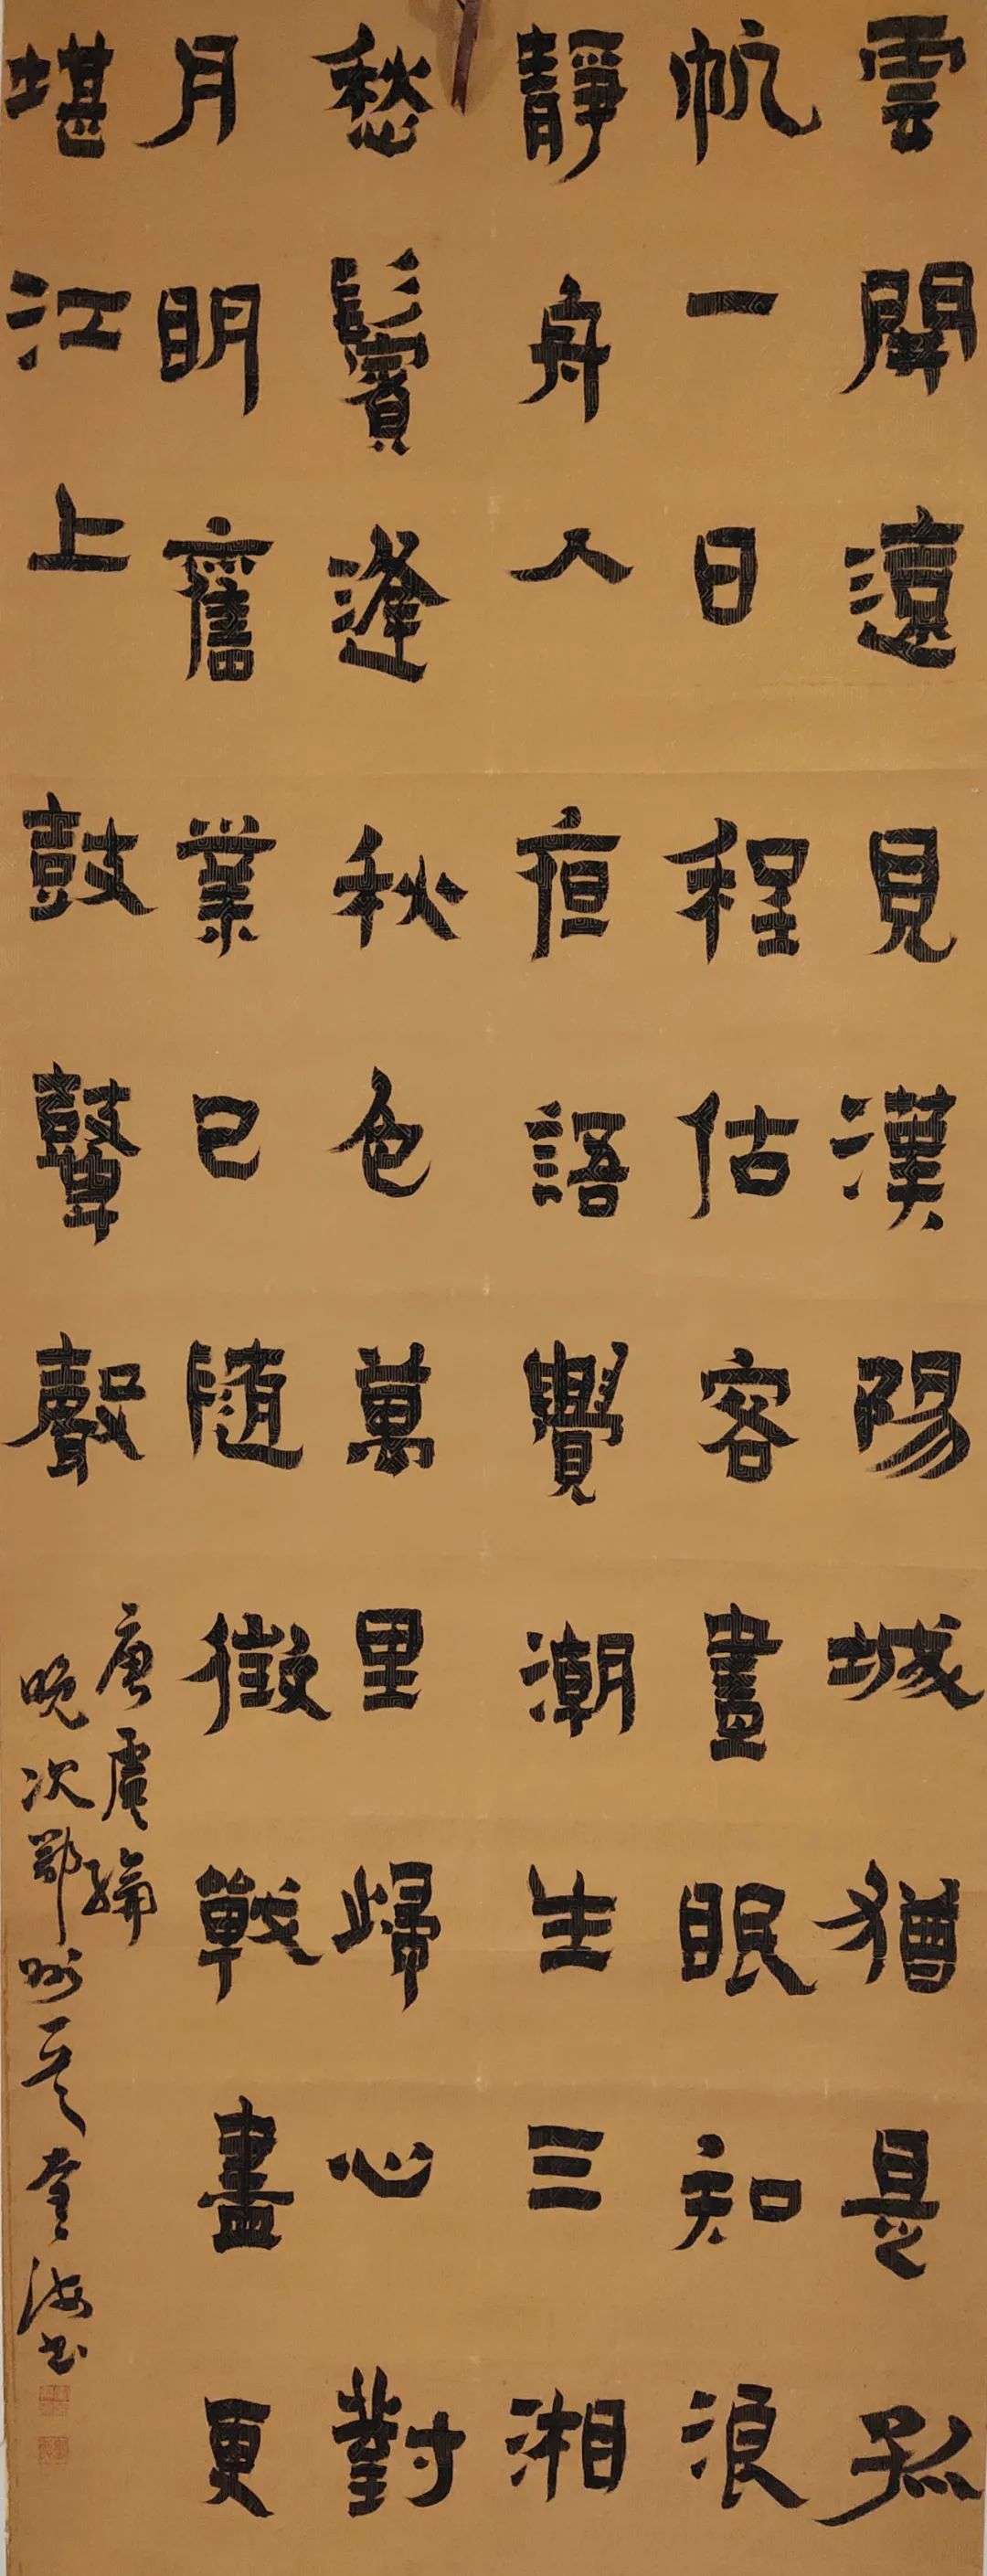 雲開遠見漢陽城猶是孤
帆一日程估客晝眠知浪
靜舟人夜語覺潮生三湘
愁鬢逢秋色萬里歸心對
月眀舊業已隨徵戰盡更
堪江上鼓鼙聲
唐盧綸
晚次鄂州海書